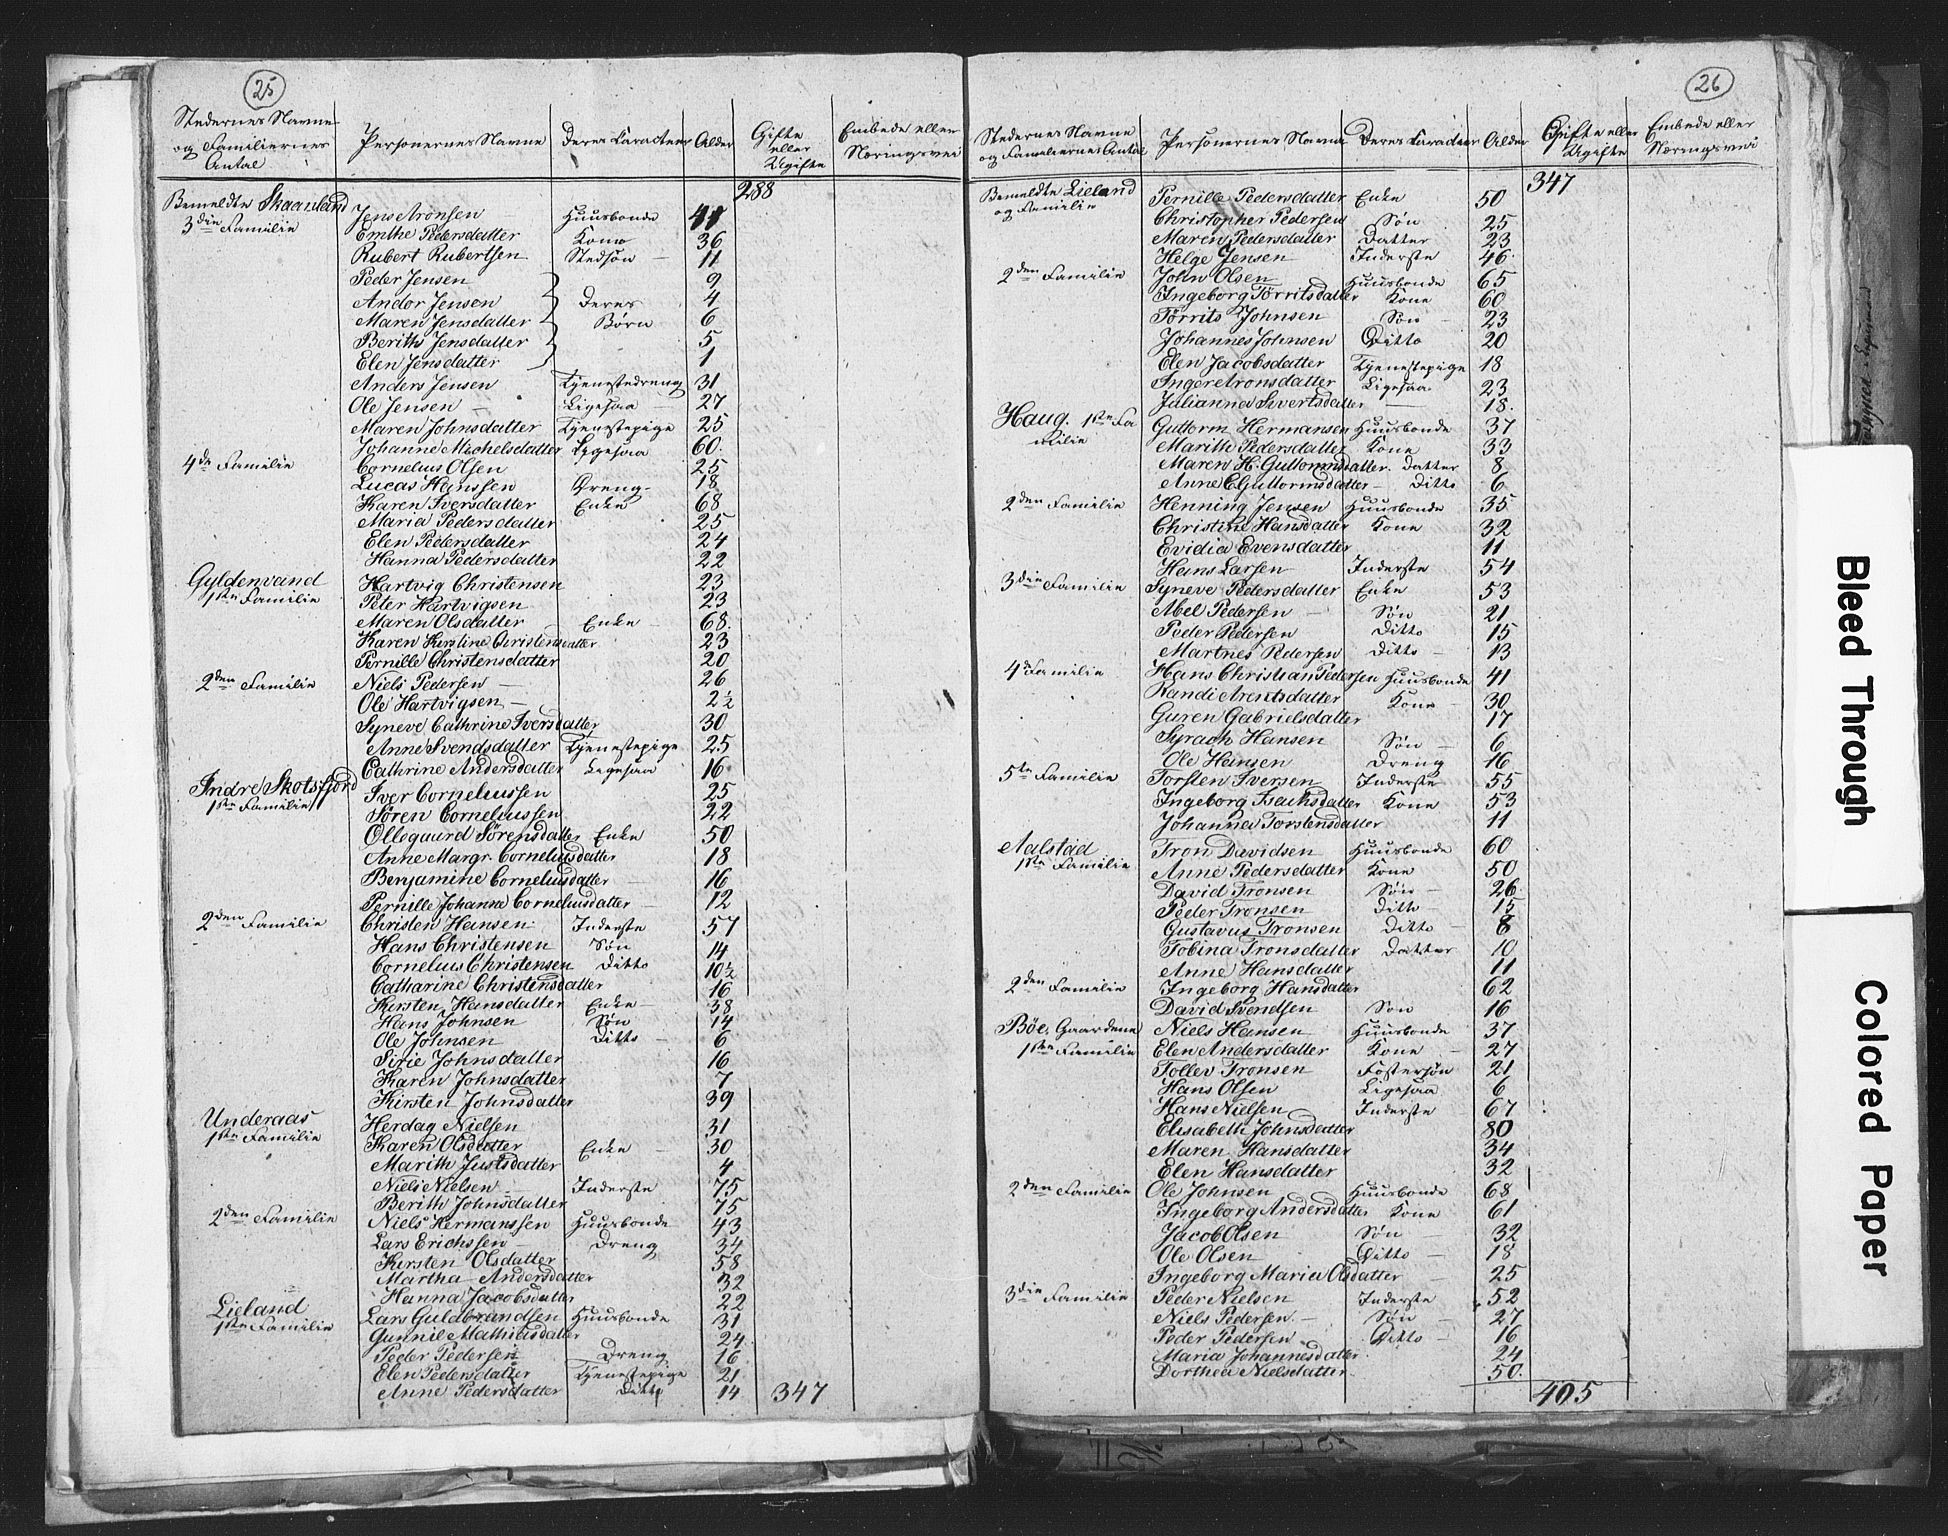 25
Stedernes Navne og Familiernes Antal | Personernes Navne | Deres Caracteer | Alder | Gifte eller Ugifte | Embede eller Næringsvei
288
Bemeldte Skaanland Jens Aronsen Huusbonde 41
3die Familie Emthe Pedersdatter Kone 36
Rubert Rubertsen Stedsøn 11
Peder Jensen 9
Andor Jensen Deres 4
Maren Jensdatter Børn 6
Berith Jensdatter 5
Elen Jensdatter 1
Anders Jensen Tjenestedreng 31
Ole Jensen Ligesaa 27
Maren Johnsdatter Tjenestepige 25
Johanne Michelsdatter Ligesaa 60
4de Familie Cornelius Olsen 25
Lucas Hanssen Dreng 18
Karen Iversdatter Enke 68
Maria Pedersdatter 25
Elen Pedersdatter 24
Hanna Pedersdatter 22
Gyldenvand Hartvig Christensen 23
1ste Familie Peter Hartvigsen 23
Maren Olsdatter Enke 68
Karen Kerstine Christensdatter 23
Pernille Christensdatter 20
2den Familie Niels Pedersen 26
Ole Hartvigsen 2½
Syneve Cathrine Iversdatter 30
Anne Svendsdatter Tjenestepige 25
Cathrine Andersdatter Ligesaa 16
Indre Skotsfjord Iver Corneliussen 25
1ste Familie Søren Corneliussen 22
Ollegaard Sørensdatter Enke 50
Anne Margr. Corneliusdatter 18
Benjamine Corneliusdatter 16
Pernille Johanne Corneliusdatter 12
2den Familie Christen Hansen Inderste 57
Hans Christensen Søn 14
Cornelius Christensen Ditto 10½
Catharine Christensdatter 16
Kirsten Hansdatter Enke 38
Hans Johnsen Søn 14
Ole Johnsen Ditto 6
Sirie Johnsdatter 16
Karen Johnsdatter 7
Kirsten Johnsdatter 39
Underaas Herdag Nielsen 31
1ste Familie Karen Olsdatter Enke 30
Marith Justsdatter 4
Niels Nielsen Inderste 75
Berith Johnsdatter 75
2den Familie Niels Hermanssen Huusbonde 43
Lars Erichssen Dreng 34
Kirsten Olsdatter 58
Martha Andersdatter 32
Hanna Jacobsdatter 22
Lieland Lars Guldbrandsen Huusbonde 31
1ste Familie Gunnil Mathiasdatter 24
Peder Pedersen Dreng 16
Elen Pedersdatter Tjenestepige 21
Anne Pedersdatter Ditto 14 347
26
Stedernes Navne og Familiernes Antal | Personernes Navne | Deres Caracteer | Alder | Gifte eller Ugifte | Embede eller Næringsvei
347
Bemeldte Lieland og Familie Pernille Pedersdatter Enke 50
Christopher Pedersen Søn 25
Maren Pedersdatter Datter 23
Helge Jensen Inderste 46
2den Familie John Olsen Huusbonde 65
Ingeborg Törritsdatter Kone 60
Törrits Johnsen Søn 23
Johannes Johnsen Ditto 20
Elen Jacobsdatter Tjenestepige 18
Inger Aronsdatter Ligesaa 23
Julianna Sivertsdatter 18
Haug. 1ste Familie Guttorm Hermansen Huusbonde 37
Marith Pedersdatter Kone 33
Maren H. Guttormsdatter Datter 8
Anne E Guttormsdatter Ditto 6
2den Familie Henning Jensen Huusbonde 35
Christine Hansdatter Kone 32
Evidia Evensdatter 11
Hans Larsen Inderste 54
3die Familie Syneve Pedersdatter Enke 53
Abel Pedersen Søn 21
Peder Pedersen Ditto 15
Martnes Pedersen Ditto 13
4de Familie Hans Christian Pedersen Huusbonde 41
Randi Arentsdatter Kone 30
Guren Gabrielsdatter 17
Syrach Hansen Søn 6
Ole Hansen Dreng 16
5te Familie Torsten Iversen Inderste 55
Ingeborg Isachsdatter Kone 53
Johanna Torstensdatter 11
Aalstad Tron Davidsen Huusbonde 60
1ste Familie Anne Pedersdatter Kone 50
David Tronsen Søn 26
Peder Tronsen Ditto 15
Gustavus Tronsen Ditto 8
Tobina Tronsdatter Datter 10
Anne Hansdatter 11
2den Familie Ingeborg Hansdatter 62
David Svendsen Søn 16
Böe, Gaardene Niels Hansen Huusbonde 37
1ste Familie Elen Andersdatter Kone 27
Tollev Tronsen Fostersøn 21
Hans Olsen Ligesaa 6
Hans Nielsen Inderste 67
Elisabeth Johnsdatter 80
Maren Hansdatter 34
Elen Hansdatter 32
2den Familie Ole Johnsen Huusbonde 68
Ingeborg Andersdatter Kone 61
Jacob Olsen Søn 32
Ole Olsen Ditto 18
Ingeborg Maria Olsdatter 25
3die Familie Peder Nielsen Inderste 52
Niels Pedersen Søn 27
Peder Pedersen Ditto 16
Maria Johannesdatter 24
Dorthea Nielsdatter 50
405
Bleed Through
Colored Paper